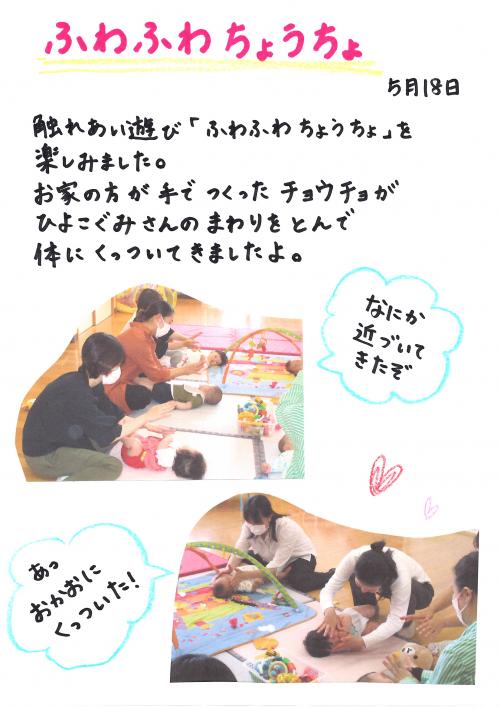 ふわふわちょうちょ
5月18日
触れあい遊び「ふわふわちょうちょ」を
楽しみました。
お家の方が手でつくったチョウチョが
ひよこぐみさんのまわりをとんで
体にくっついてきましたよ。
なにか
近づいて
きたぞ
あっ
おかおに
くっついた!